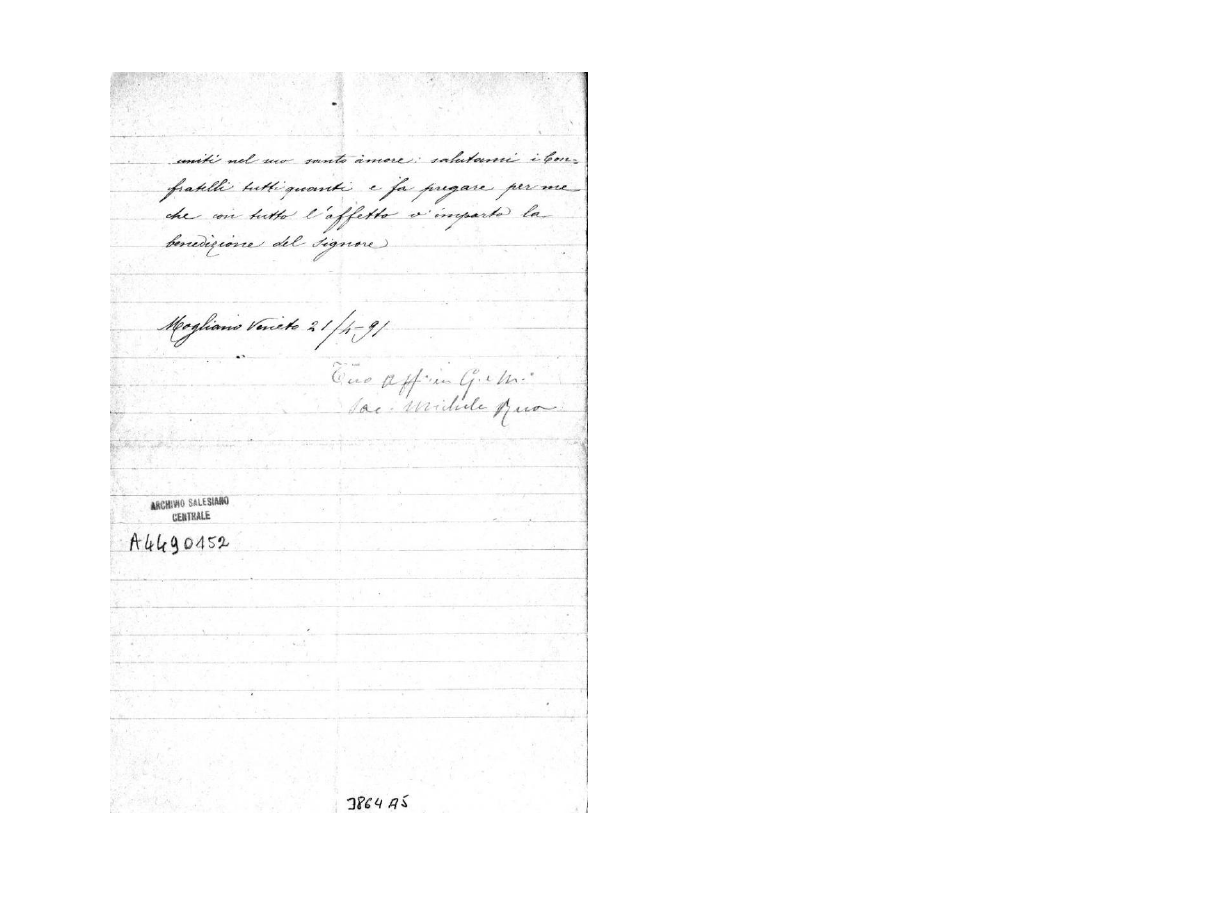 uniti nel suo santo amore: salutami i Con=
fratelli tutti quanti e fa pregare per me
che con tutto l'affetto v'imparto la
benedizione del Signore
Mogliano Veneto 21/4-91
Tuo aff. in G. e M.
Sac. Michele Rua
ARCHIVIO SALESIANO
CENTRALE
A4490152
3864 A5